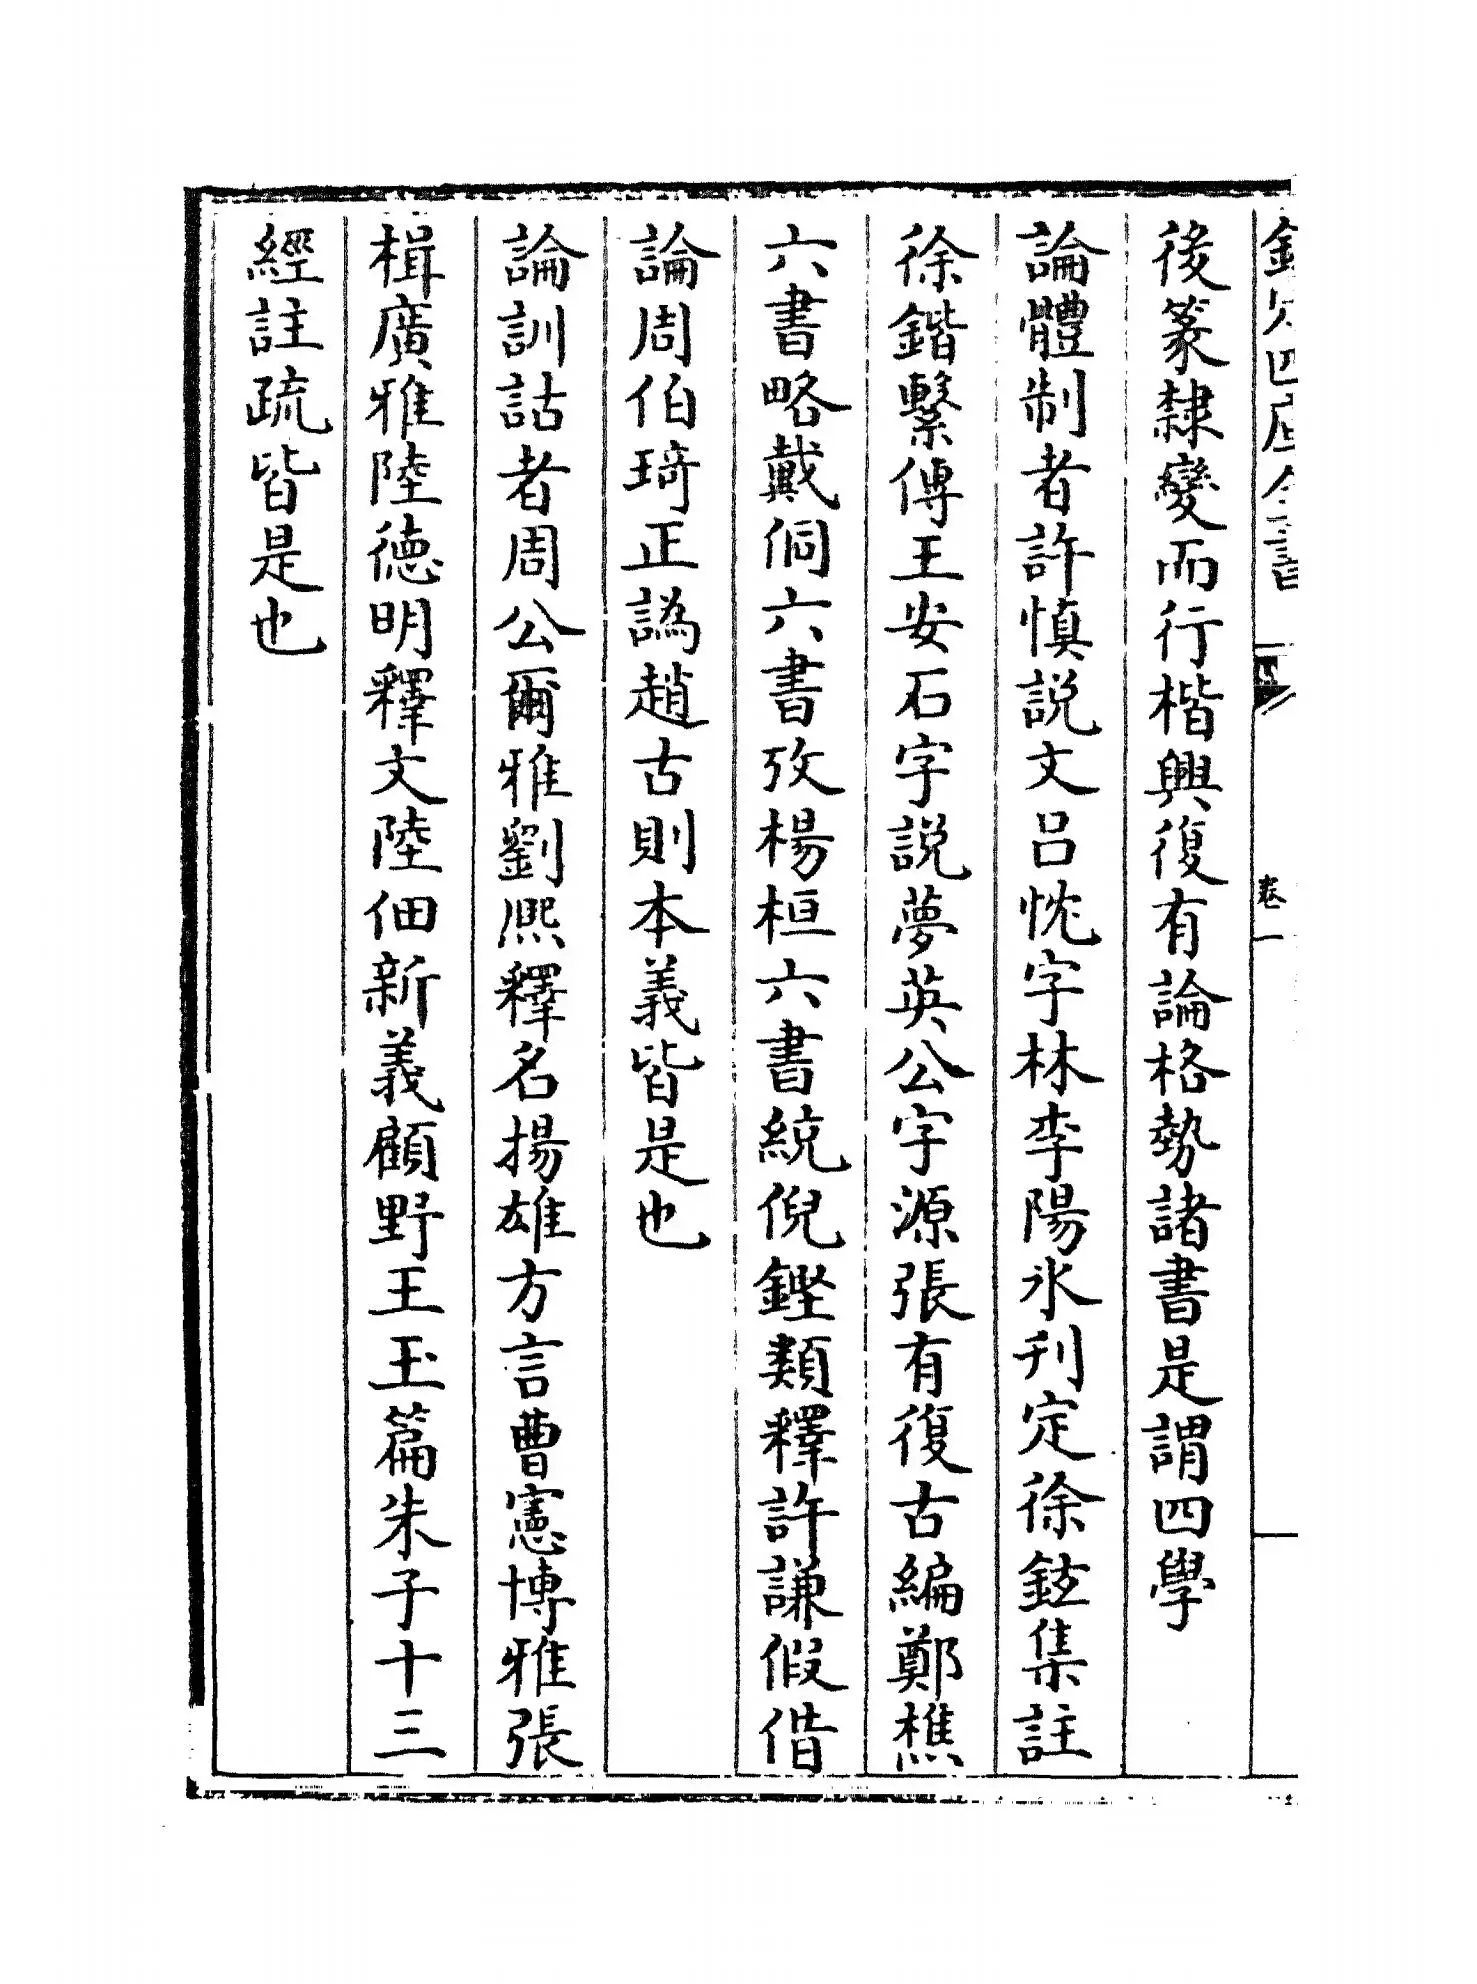 欽定四庫全書
卷一
後篆隸變而行楷興復有論格勢諸書是謂四學
論體制者許慎説文呂忱字林李陽氷刋定徐鉉集註
徐鍇繫傳王安石字説夢英公字源張有復古編鄭樵
六書略戴侗六書攷楊桓六書統倪鏗類釋許謙假借
論周伯琦正譌趙古則本義皆是也
論訓詁者周公爾雅劉熈釋名揚雄方言曹憲博雅張
楫廣雅陸德明釋文陸佃新義顧野王玉篇朱子十三
經註疏皆是也